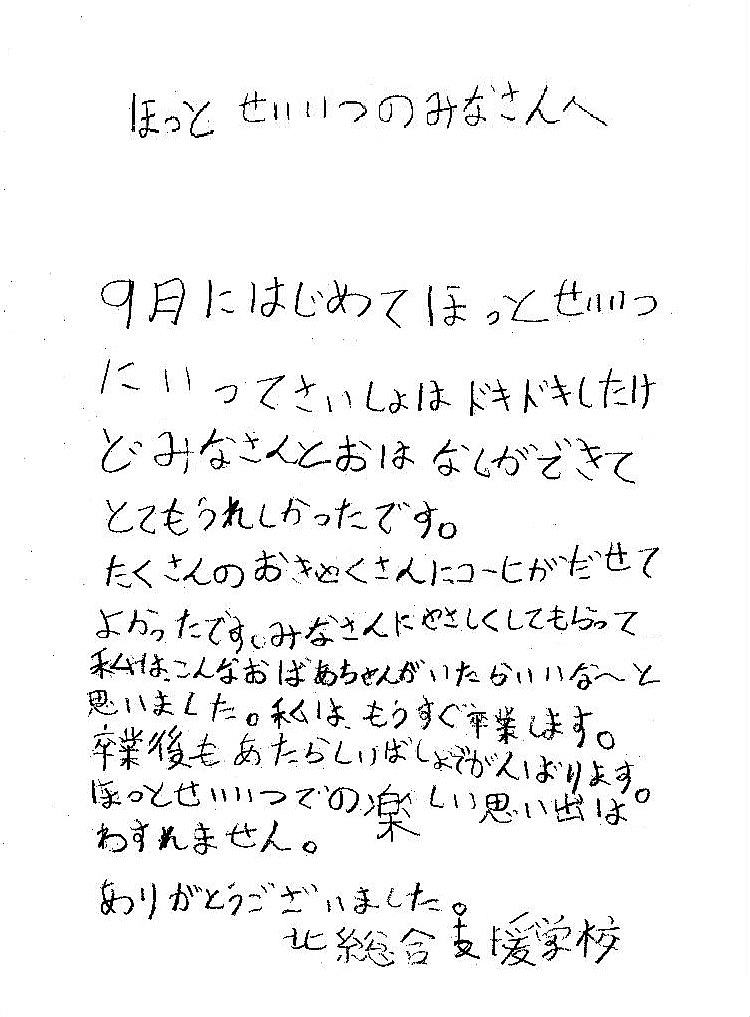 ほっと せいいつのみなさんへ
9月にはじめてほっとせいいつ
にいってさいしょはドキドキしたけ
どみなさんとおはなしができて
とてもうれしかったです。
たくさんのおきゃくさんにコーヒがだせて
よかったです。みなさんにやさしくしてもらって
私は、こんなおばあちゃんがいたらいいな〜と
思いました。私は、もうすぐ卒業します。
卒業後もあたらしいばしょでがんばります。
ほっとせいいつでの楽しい思い出は
わすれません。
ありがとうございました。
北総合支援学校